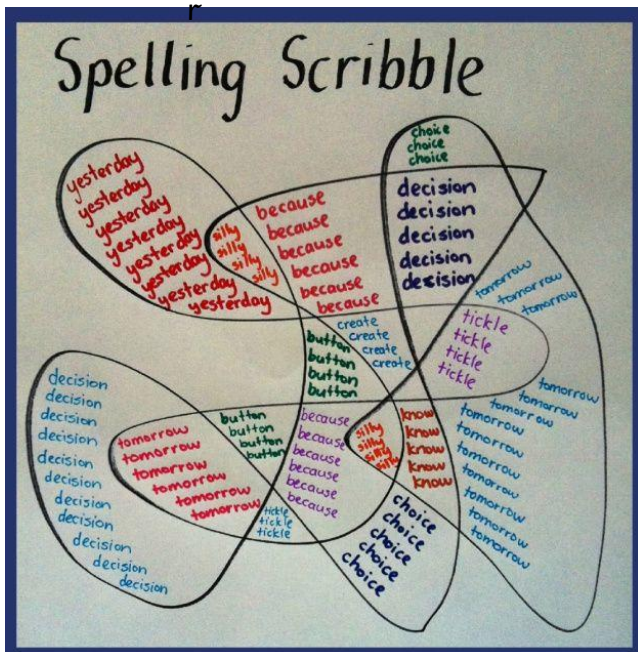 Spelling Scribble
yesterday
yesterday
yesterday
yesterday
yesterday
yesterday
yesterday
yesterday
silly
silly
silly
silly
because
because
because
because
because
because
choice
choice
choice
decision
decision
decision
decision
decision
tomorrow
tomorrow
tomorrow
create
create
create
create
button
button
button
button
tickle
tickle
tickle
tickle
decision
decision
decision
decision
decision
decision
decision
decision
decision
decision
tomorrow
tomorrow
tomorrow
tomorrow
tomorrow
button
button
button
button
because
because
because
because
because
because
tickle
tickle
tickle
silly
silly
silly
silly
know
know
know
know
know
choice
choice
choice
choice
choice
tomorrow
tomorrow
tomorrow
tomorrow
tomorrow
tomorrow
tomorrow
tomorrow
tomorrow
tomorrow